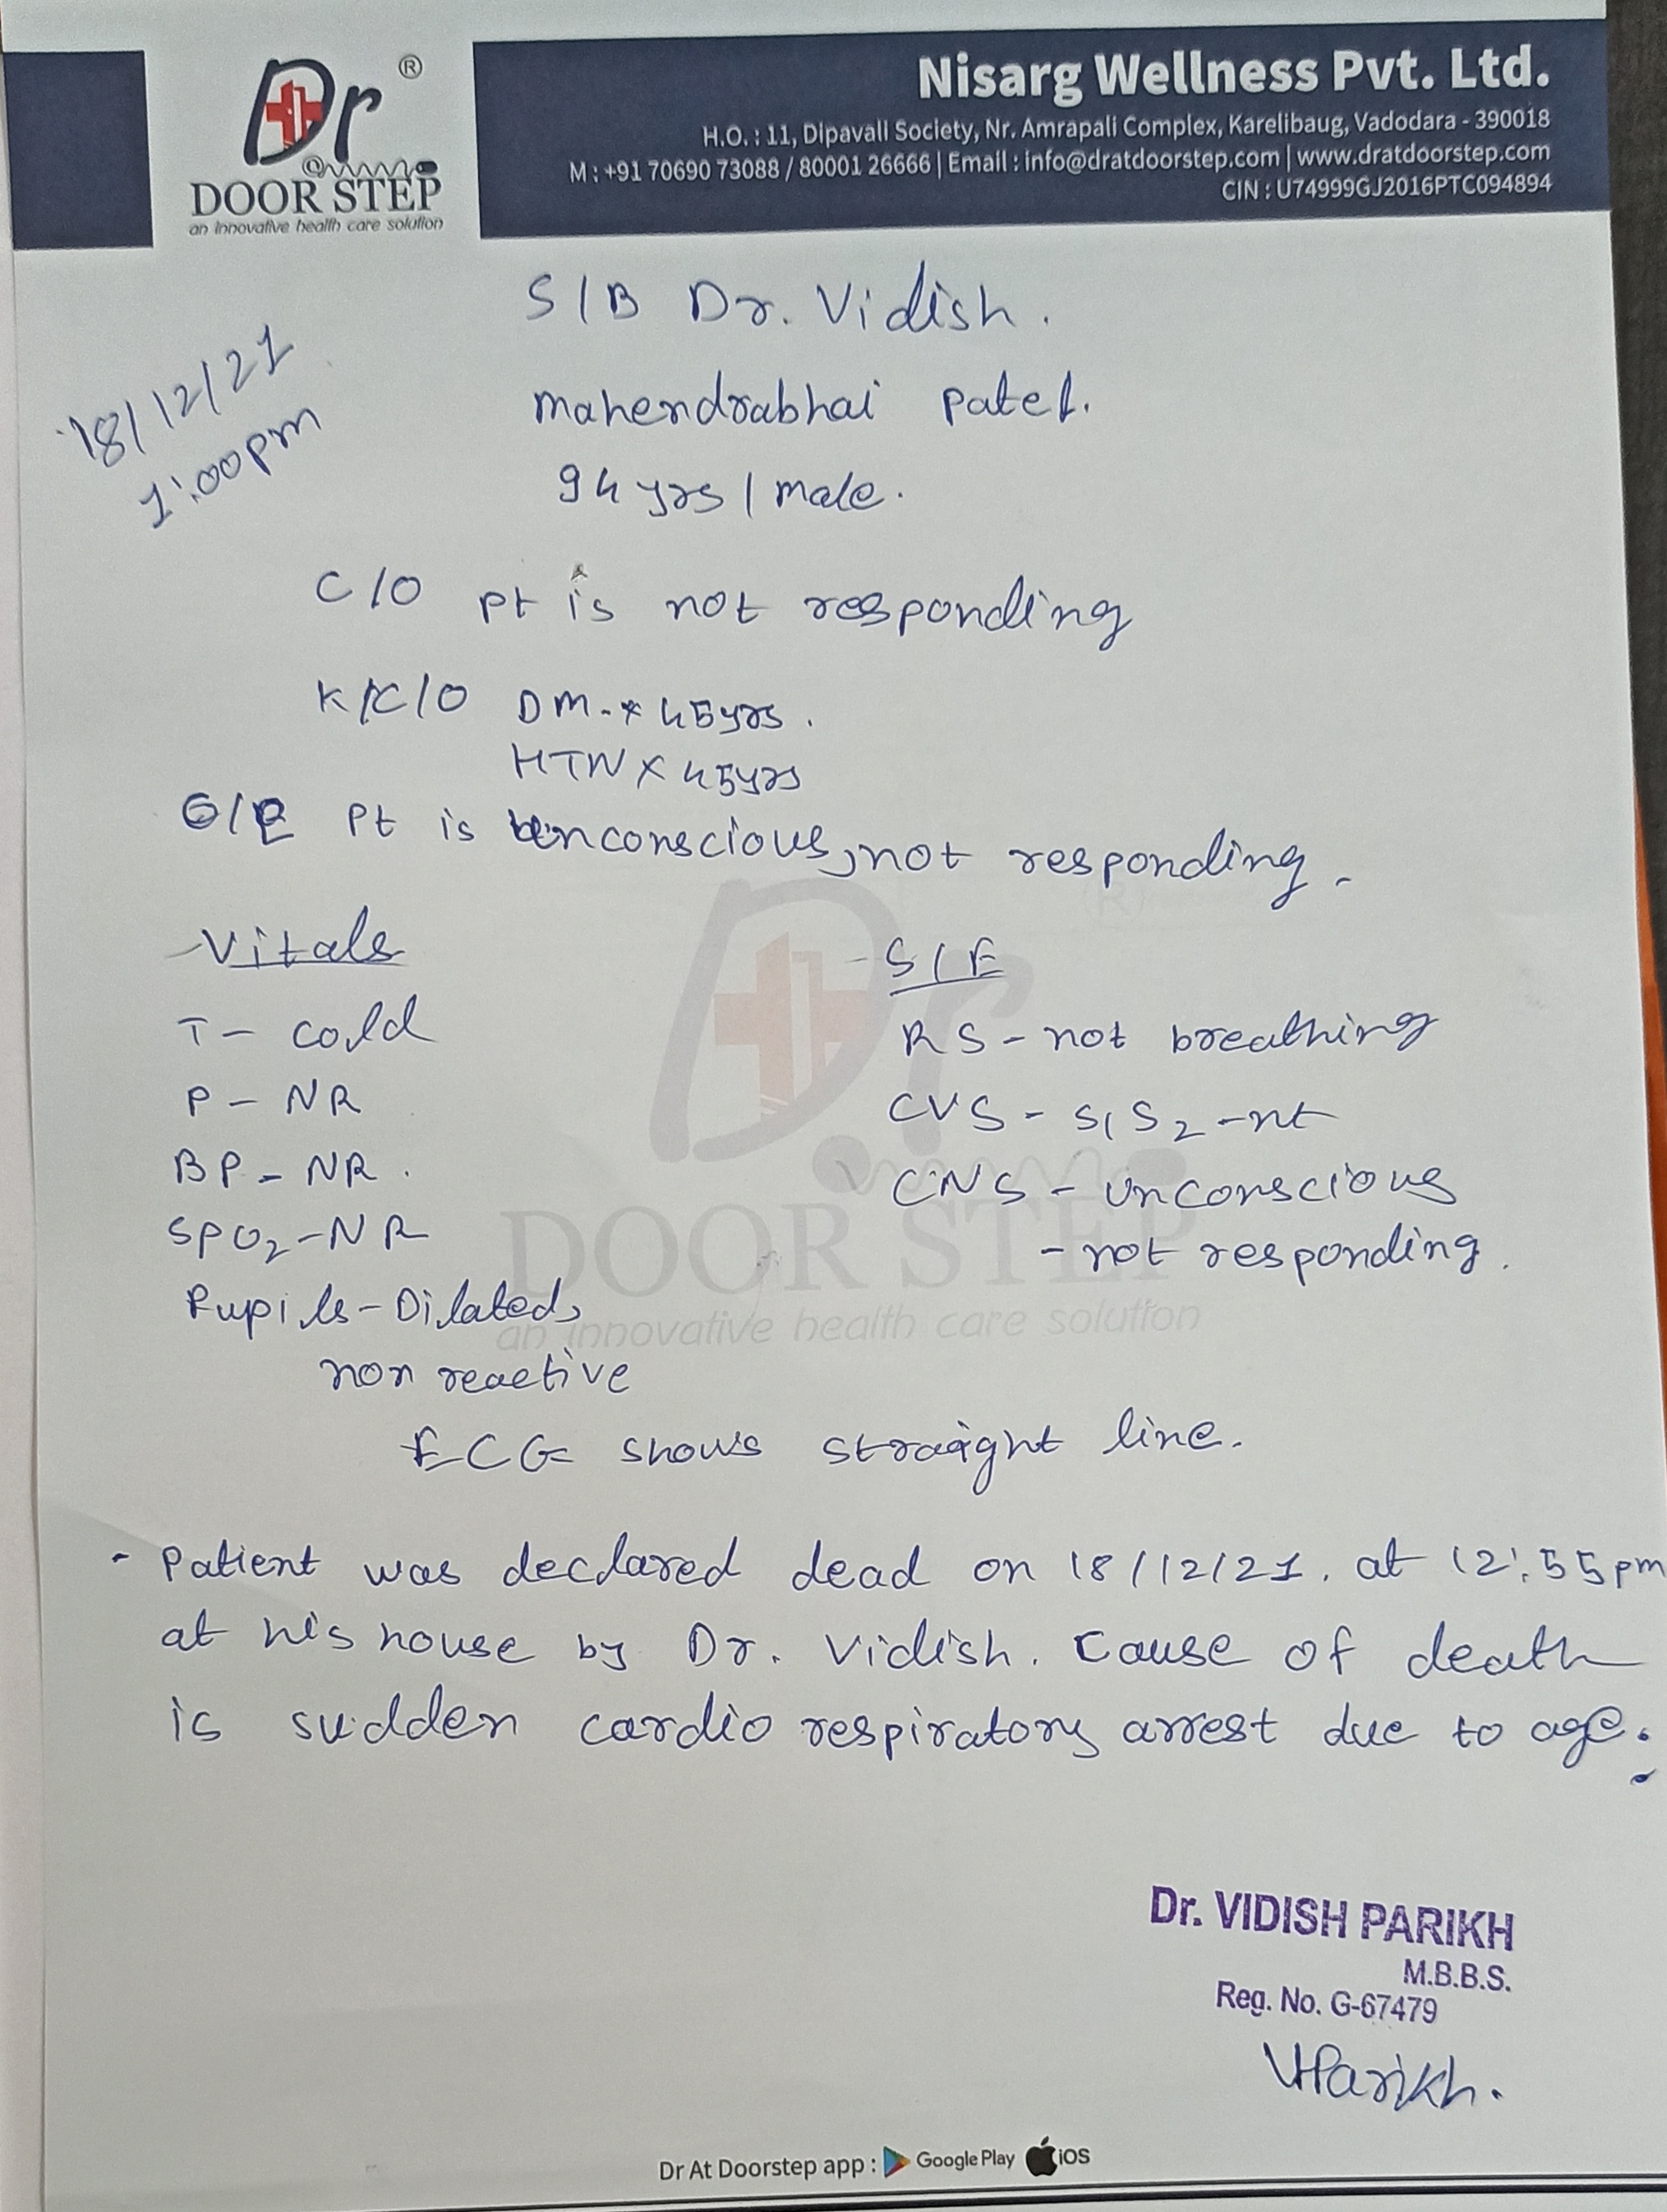 Dr ®
DOOR STEP
an innovative health care solution
Nisarg Wellness Pvt. Ltd.
H.O. : 11, Dipavali Society, Nr. Amrapali Complex, Karelibaug, Vadodara - 390018
M : +91 70690 73088 / 80001 26666 | Email : info@dratdoorstep.com | www.dratdoorstep.com
CIN : U74999GJ2016PTC094894
S/B Dr. Vidish.
18/12/21
1:00pm
mahendrabhai patel.
94 yrs / male.
C/O pt is not responding
K/C/O DM - x 45yrs.
HTN x 45yrs
O/E Pt is unconscious, not responding.
Vitals
S/E
T - cold
RS - not breathing
P - NR
CVS - S1 S2 - nt
BP - NR.
CNS - unconscious
SPO2 - NR
- not responding.
Pupils - Dilated,
non reactive
ECG shows straight line.
- Patient was declared dead on 18/12/21. at 12:55pm
at his house by Dr. Vidish. Cause of death
is sudden cardio respiratory arrest due to age.
Dr. VIDISH PARIKH
M.B.B.S.
Reg. No. G-67479
VParikh.
Dr At Doorstep app : Google Play iOS
Dr ®
DOOR STEP
an innovative health care solution